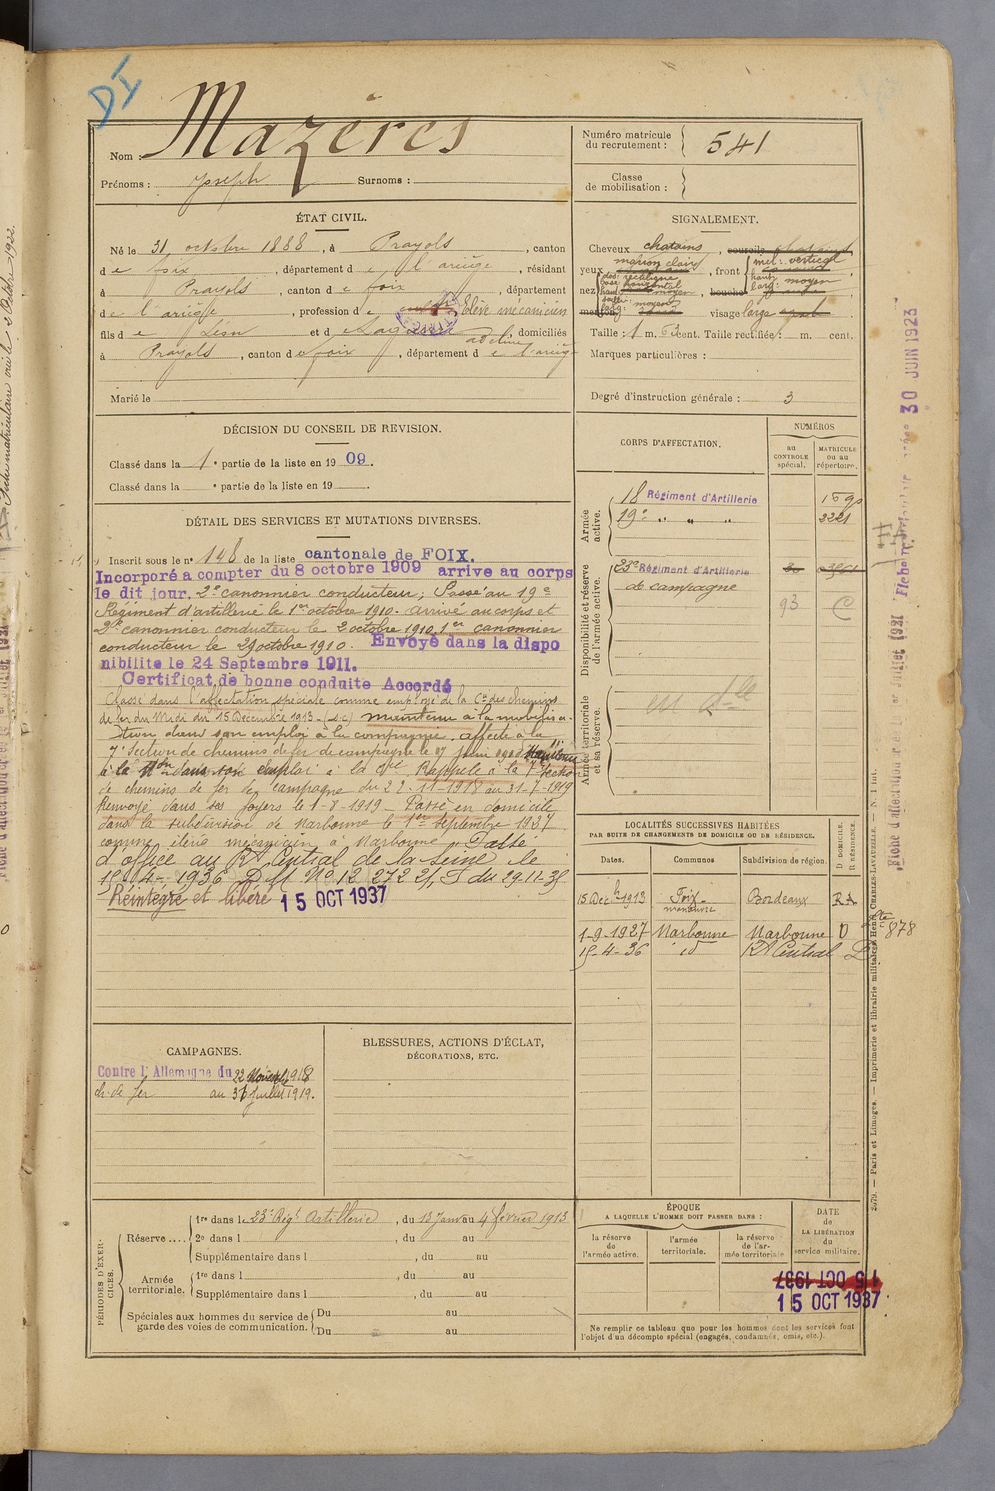 DI
Nom : Mazères
Prénoms : Joseph Surnoms :
Numéro matricule du recrutement : 541
Classe de mobilisation :
ÉTAT CIVIL.
Né le 31 octobre 1888, à Prayols, canton
de foix, département de l'ariège, résidant
à Prayols, canton de foix, département
de l'ariège, profession de Elève mécanicien
fils de Léon et de adeline, domiciliés
à Prayols, canton de foix, département de l'ariège
Marié le
SIGNALEMENT.
Cheveux chatains, sourcils
yeux marron clair, front incl: verticale haut: moyen larg: moyen
nez dos: rectiligne base: horizontal haut: moyen, bouche
menton visage large
Taille : 1 m. 63 cent. Taille rectifiée : m. cent.
Marques particulières :
Degré d'instruction générale : 3
DÉCISION DU CONSEIL DE REVISION.
Classé dans la 1e partie de la liste en 1909.
Classé dans la e partie de la liste en 19
CORPS D'AFFECTATION.
NUMÉROS
au CONTROLE spécial.
MATRICULE ou au répertoire.
Armée active.
18 Régiment d'Artillerie
19e " " " 2221
Disponibilité et réserve de l'armée active.
23e Régiment d'Artillerie
de campagne
93 C
Armée territoriale et sa réserve.
DÉTAIL DES SERVICES ET MUTATIONS DIVERSES.
Inscrit sous le n° 148 de la liste cantonale de FOIX.
Incorporé à compter du 8 octobre 1909 arrive au corps
le dit jour. 2e canonnier conducteur; Passé au 19e
Régiment d'artillerie le 1er octobre 1910. arrivé au corps et
2e canonnier conducteur le 2 octobre 1910. 1er canonnier
conducteur le 29 octobre 1910. Envoyé dans la dispo
nibilité le 24 Septembre 1911.
Certificat de bonne conduite Accordé
Classé dans l'affectation spéciale comme employé de la Cie des chemins
de fer du Midi du 15 Décembre 1913 - (s.c) maintenu à la mobilisa-
tion dans son emploi à la compagnie. affecté à la
7e section de chemins de fer de campagne le
à la dans son emploi à la Cie Rappelé à la 7e section
de chemins de fer de campagne du 22-11-1918 au 31-7-1919
Renvoyé dans ses foyers le 1-8-1919 Passé en domicile
dans la subdivision de Narbonne le 1er Septembre 1927
comme élève mécanicien à Narbonne. Passé
d'office au RA Central de la Seine le
15-4-1936 D.M. N° 12 272 2/ du 29-11-35
Réintégré et libéré 15 OCT 1937
LOCALITÉS SUCCESSIVES HABITÉES
PAR SUITE DE CHANGEMENTS DE DOMICILE OU DE RÉSIDENCE.
Dates. Communes Subdivision de région. D DOMICILE. R RÉSIDENCE.
15 Déc 1913 Foix Bordeaux
1-9-1927 Narbonne Narbonne D
15-4-36 id RA Central
878
CAMPAGNES.
Contre l'Allemagne du 22 Novembre 1918
ch. de fer au 31 Juillet 1919.
BLESSURES, ACTIONS D'ÉCLAT,
DÉCORATIONS, ETC.
PÉRIODES D'EXERCICES.
Réserve .... 1re dans le 23e Régt Artillerie, du 13 Janv au 4 février 1913
2e dans l , du au
Supplémentaire dans l , du au
Armée territoriale. 1re dans l , du au
Supplémentaire dans l , du au
Spéciales aux hommes du service de garde des voies de communication. Du au
Du au
ÉPOQUE
A LAQUELLE L'HOMME DOIT PASSER DANS :
la réserve de l'armée active.
l'armée territoriale.
la réserve de l'armée territoriale
DATE de LA LIBÉRATION du service militaire.
15 OCT 1937
15 OCT 1937
Ne remplir ce tableau que pour les hommes dont les services font
l'objet d'un décompte spécial (engagés, condamnés, omis, etc.).
30 JUIN 1923
2579. — Paris et Limoges. — Imprimerie et librairie militaires Henri CHARLES-LAVAUZELLE.